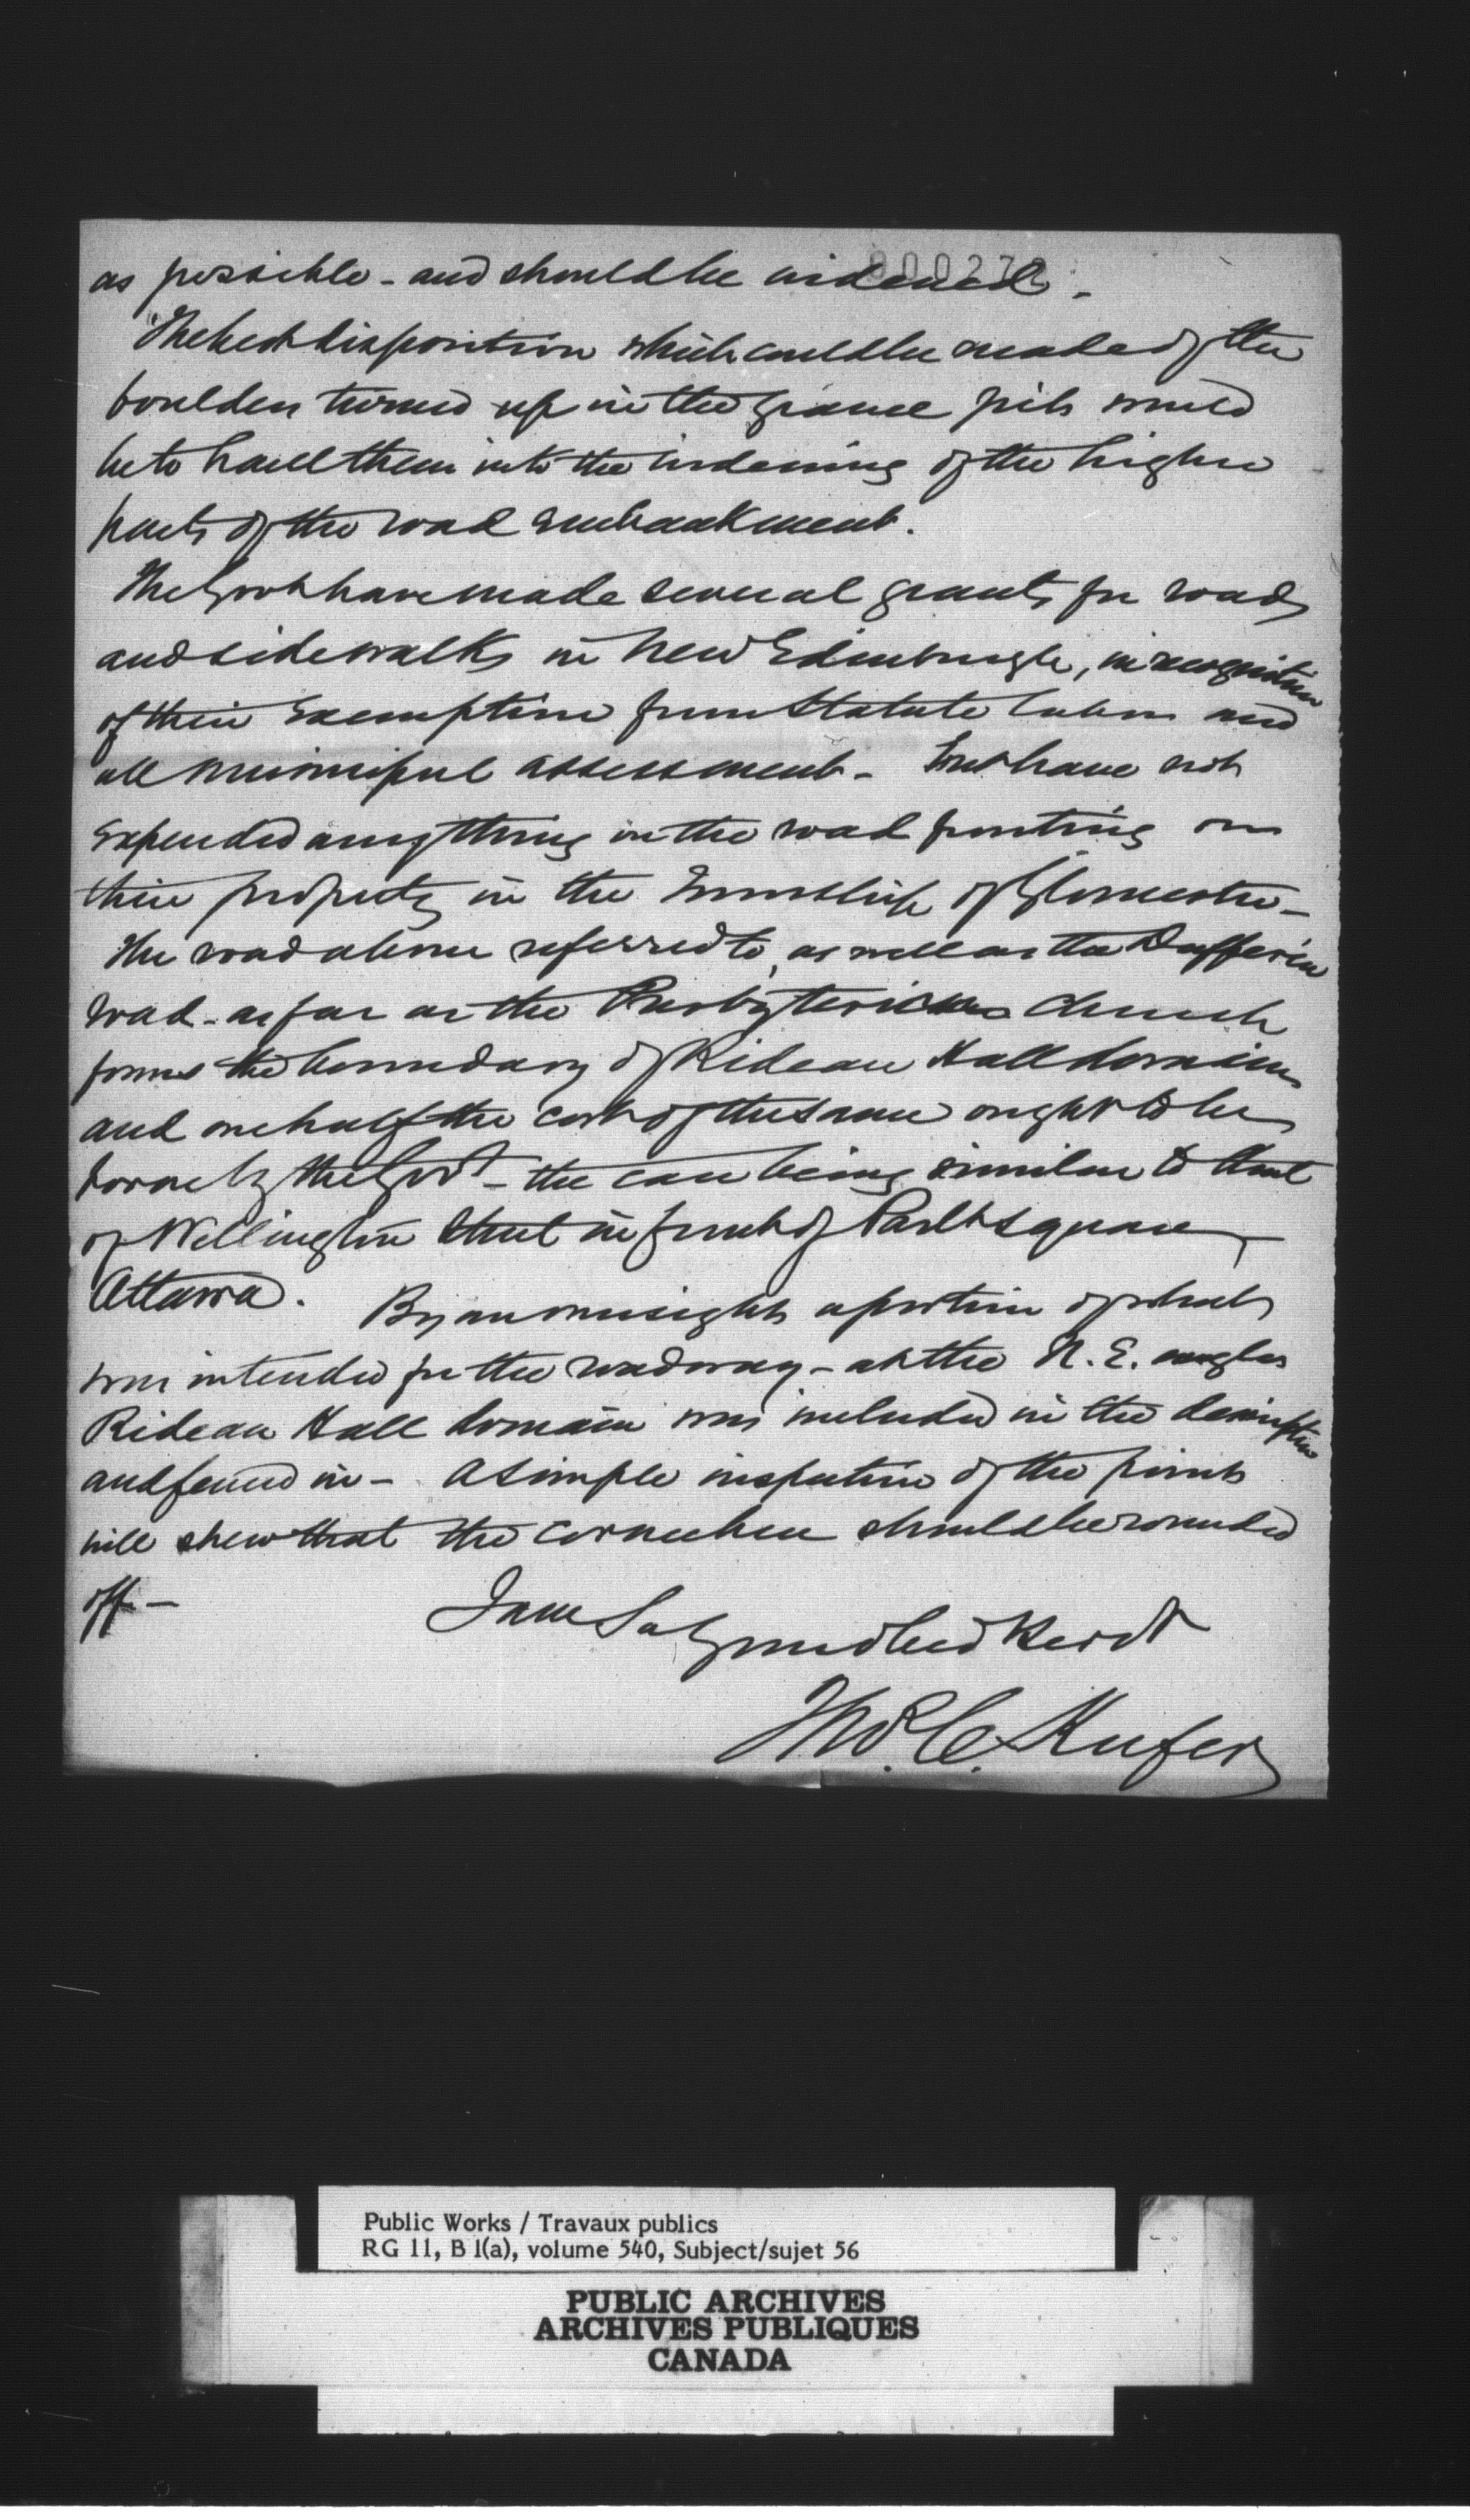 as possible - and should be widened -
000272
The best disposition which could be made of the
boulders turned up in the gravel pits would
be to haul them into the widening of the higher
parts of the road embankment.
The Govt have made several grants for roads
and sidewalks in New Edinburgh, in recognition
of their exemption from Statute labor and
all municipal assessment - but have not
expended anything on the road fronting on
their property in the Township of Gloucester -
The road above referred to, as well as the Dufferin
road - as far as the Presbyterian Church
forms the boundary of Rideau Hall domain
and one half the cost of the same ought to be
borne by the Govt - the case being similar to that
of Wellington Street in front of Parlt square,
Ottawa. By an oversight a portion of what
was intended for the roadway - at the N. E. angle
Rideau Hall domain was included in the description
and fenced in - A simple inspection of the point
will shew that the corner here should be rounded
off -
I am Sir Your obed Servt
Thos C. Keefer
Public Works / Travaux publics
RG 11, B 1(a), volume 540, Subject/sujet 56
PUBLIC ARCHIVES
ARCHIVES PUBLIQUES
CANADA